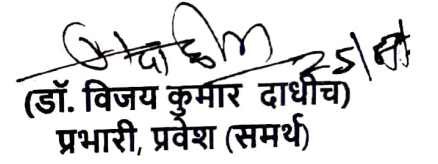 (डॉ. विजय कुमार दाधीच)
प्रभारी, प्रवेश (समर्थ)